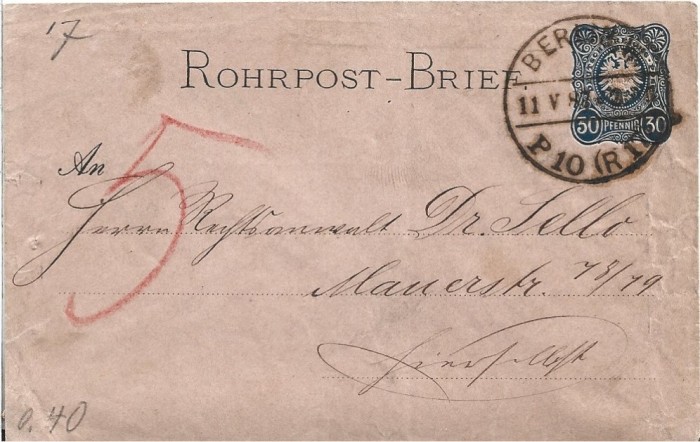 17
ROHRPOST-BRIEF.
BER
11 V
P.10 (R
30 PFENNIG 30
5
An
Herrn Rechtsanwalt Dr. Sello
Mauerstr. 78/79
hierselbst
0.40